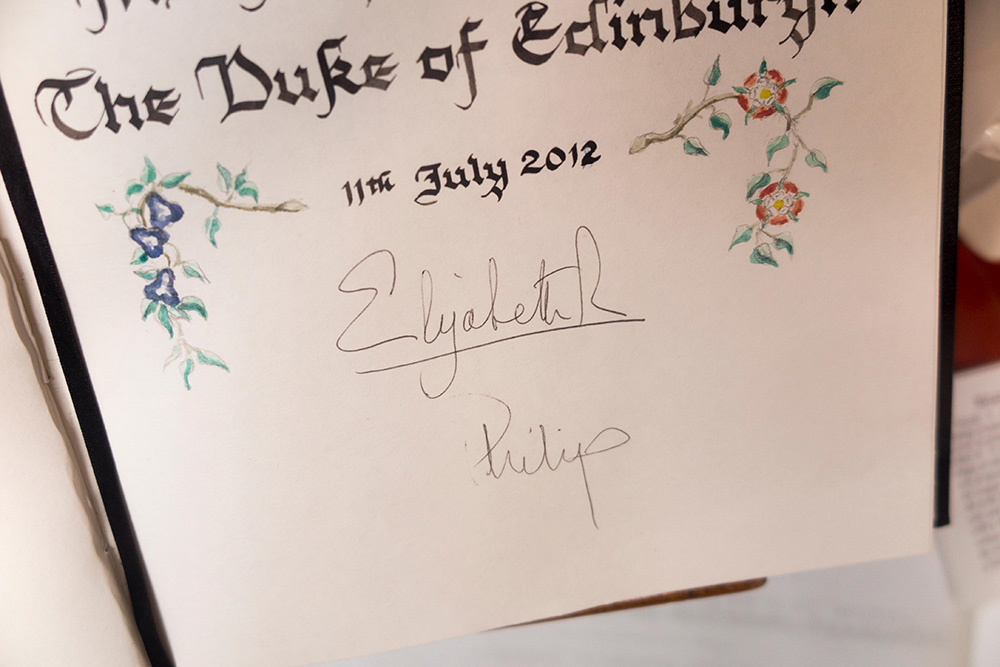 The Duke of Edinburgh
11th July 2012
Elizabeth R
Philip